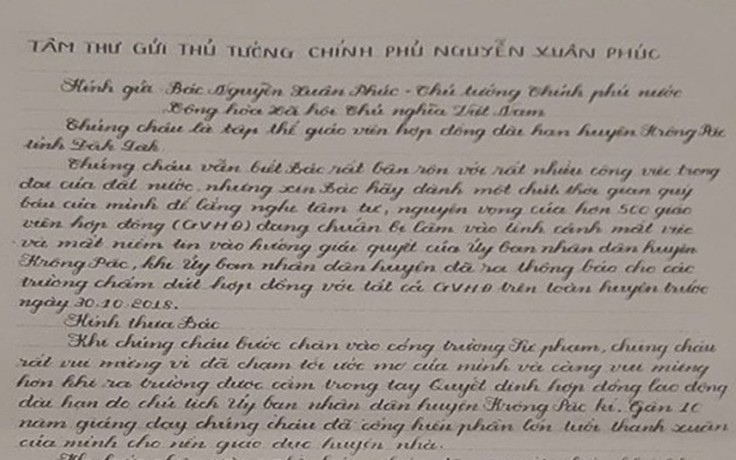 TÂM THƯ GỬI THỦ TƯỚNG CHÍNH PHỦ NGUYỄN XUÂN PHÚC
Kính gửi Bác Nguyễn Xuân Phúc - Thủ tướng Chính phủ nước
Cộng hòa Xã hội Chủ nghĩa Việt Nam
Chúng cháu là tập thể giáo viên hợp đồng dài hạn huyện Krông Pắc
tỉnh Đăk Lăk.
Chúng cháu vẫn biết Bác rất bận rộn với rất nhiều công việc trọng
đại của đất nước, nhưng xin Bác hãy dành một chút thời gian quý
báu của mình để lắng nghe tâm tư, nguyện vọng của hơn 500 giáo
viên hợp đồng (GVHĐ) đang chuẩn bị lâm vào tình cảnh mất việc
và mất niềm tin vào hướng giải quyết của Ủy ban nhân dân huyện
Krông Pắc, khi Ủy ban nhân dân huyện đã ra thông báo cho các
trường chấm dứt hợp đồng với tất cả GVHĐ trên toàn huyện trước
ngày 30.10.2018.
Kính thưa Bác
Khi chúng cháu bước chân vào cổng trường Sư phạm, chúng cháu
rất vui mừng vì đã chạm tới ước mơ của mình và càng vui mừng
hơn khi ra trường được cầm trong tay Quyết định hợp đồng lao động
dài hạn do chủ tịch Ủy ban nhân dân huyện Krông Pắc kí. Gần 10
năm giảng dạy chúng cháu đã cống hiến phần lớn tuổi thanh xuân
của mình cho nền giáo dục huyện nhà.